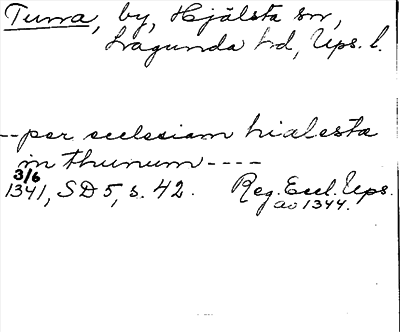 Tuna, by, Hjälsta sn,
Lagunda hd, Ups. l.
--per ecclesiam hialesta
in thunum----
3/6
1341, SD 5, s. 42. Reg. Eccl. Ups.
ao 1344.